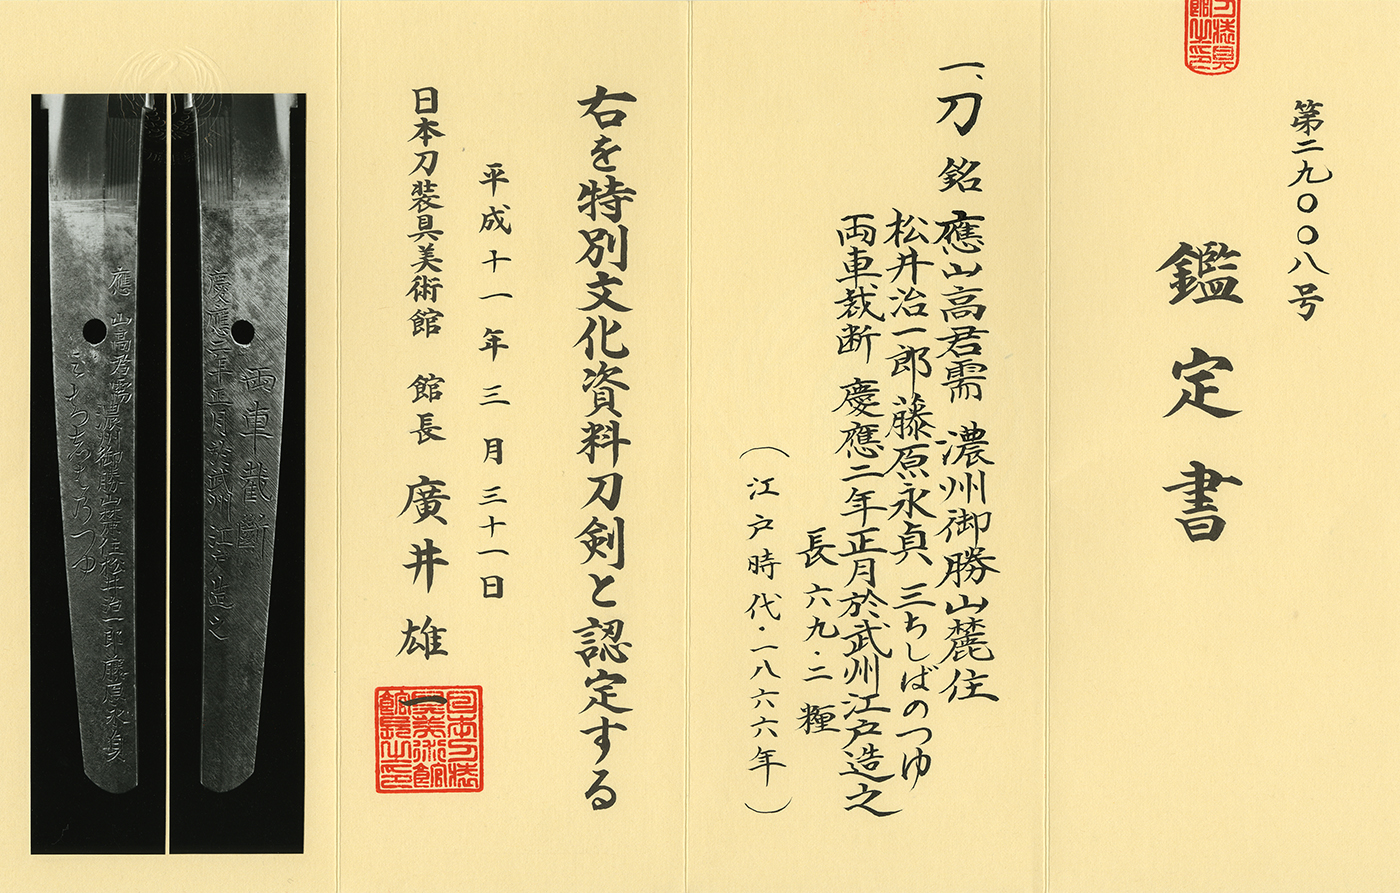 第二九〇〇八号
鑑定書
一、刀 銘 應山高君需 濃州御勝山麓住
松井治一郎藤原永貞 三ちしばのつゆ
両車裁断 慶應二年正月於武州江戸造之
長 六九・二 糎
（江戸時代・一八六六年）
右を特別文化資料刀剣と認定する
平成十一年三月三十一日
日本刀装具美術館 館長 廣井雄一
日本刀装具美術館館長之印
慶應二年正月於武州江戸造之
両車截断
應山高君需 濃州御勝山麓住松井治一郎藤原永貞